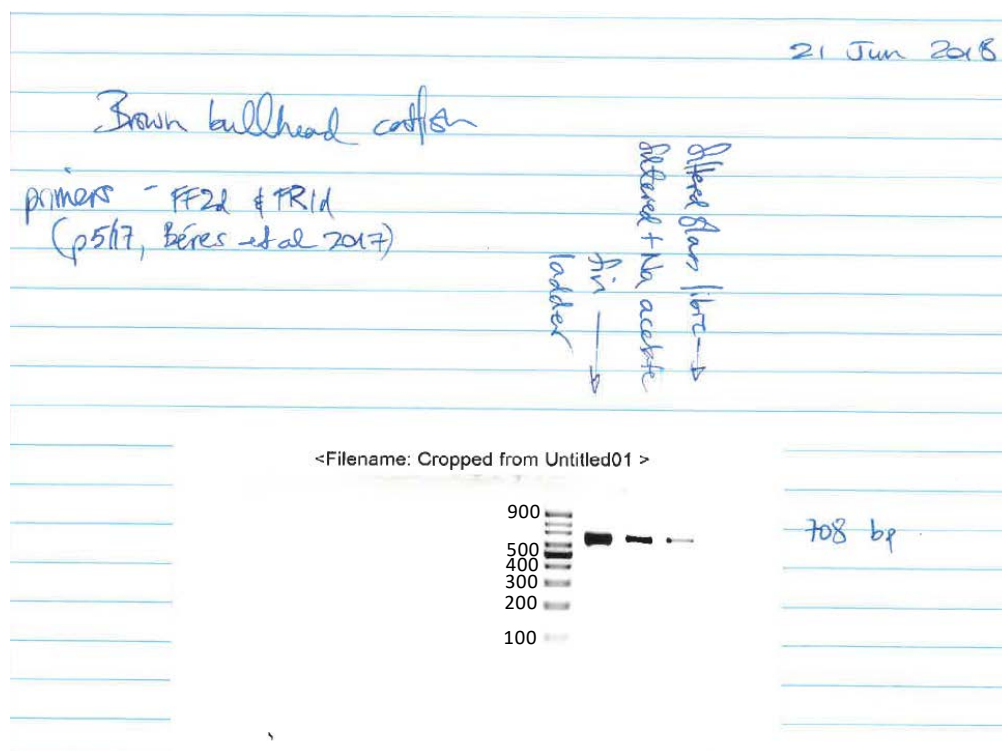 21 Jun 2018
Brown bullhead catfish
primers - FF2d & FR1d
(p5/17, Béres et al 2017)
ladder
fin
filtered + Na acetate
filtered glass fibre
<Filename: Cropped from Untitled01 >
900
500
400
300
200
100
708 bp